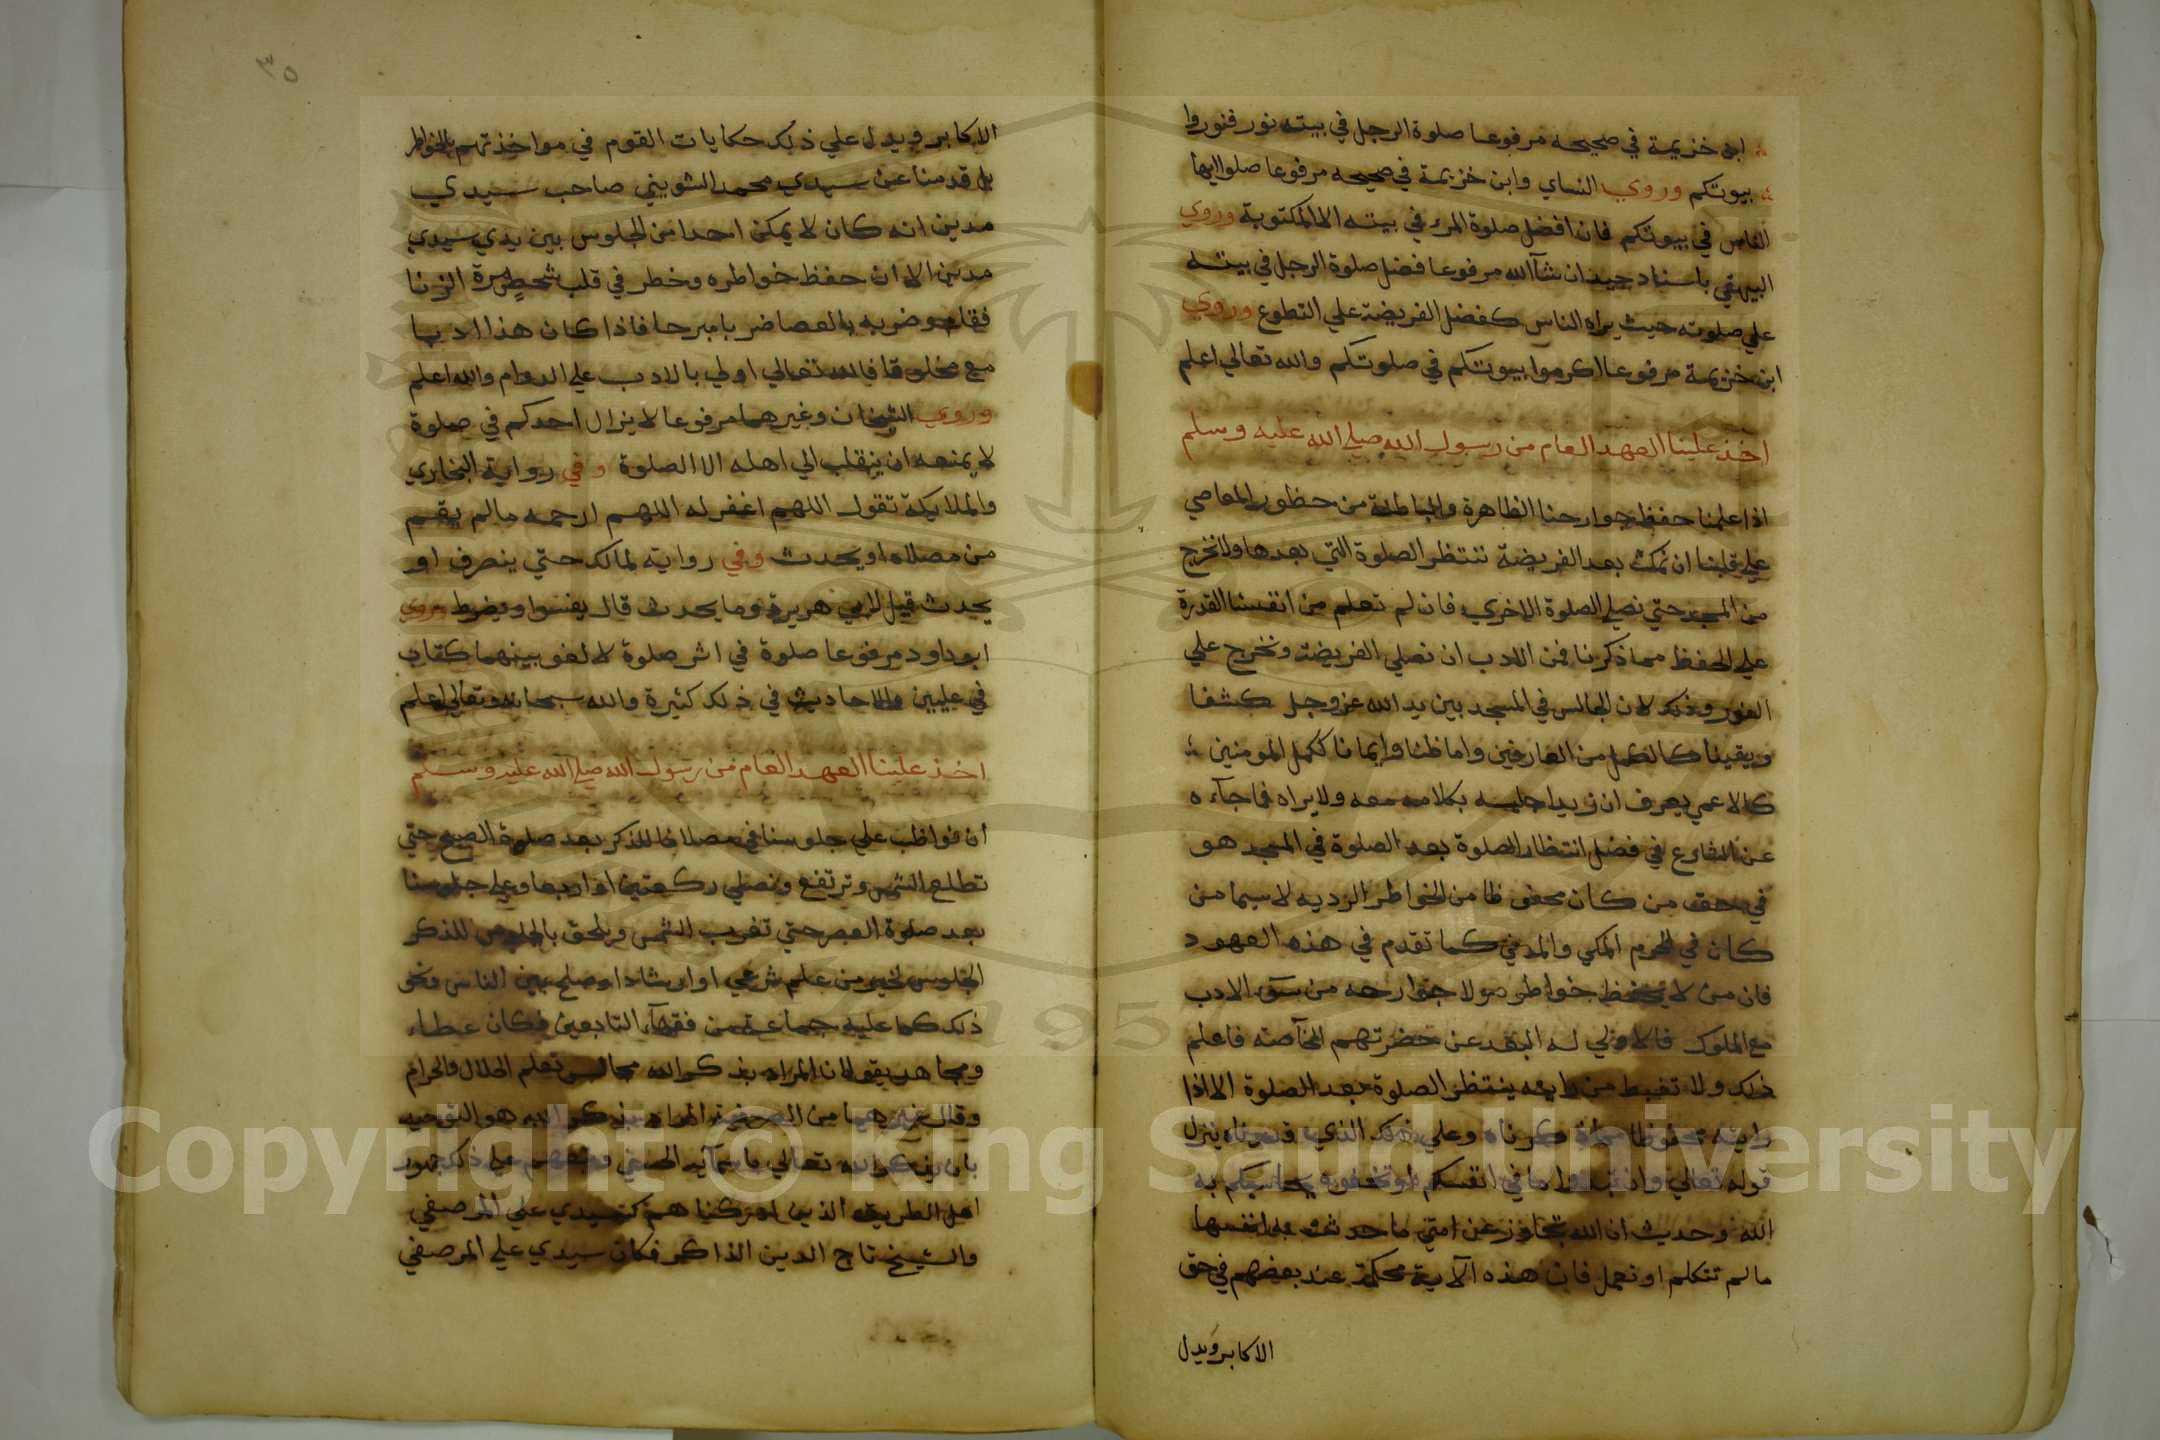 ابن خزيمة في صحيحه مرفوعا صلوة الرجل في بيته نور فنوروا
بيوتكم وروي النساي وابن خزيمة في صحيحه مرفوعا صلوا ايها
الناس في بيوتكم فان افضل صلوة المرء في بيته الا المكتوبة وروي
البيهقي باسناد جيد ان شآ الله مرفوعا فضل صلوة الرجل في بيته
علي صلوته حيث يراه الناس كفضل الفريضة علي التطوع وروي
ابن خزيمة مرفوعا اكرموا بيوتكم في صلوتكم والله تعالي اعلم
اخذ علينا العهد العام من رسول الله صلي الله عليه وسلم
اذا علمنا حفظ جوارحنا الظاهرة والباطنة من حظور المعاصي
علي قلبنا ان نمكث بعد الفريضة ننتظر الصلوة التي بعدها ولا نخرج
من المسجد حتي نصلي الصلوة الاخري فان لم نعلم من انفسنا القدرة
علي الحفظ مما ذكرنا فمن الادب ان نصلي الفريضة ونخرج علي
الفور وذلك لان الجالس في المسجد بين يد الله عز وجل كشفا
ويقينا كالكمل من العارفين واما ظنا وايمانا ككمل المومنين
كالاعمي يعرف ان زيدا جليسه بكلامه معه ولا يراه فما جآءه
عن الشارع في فضل انتظار الصلوة بعد الصلوة في المسجد هو
في حق من كان محفوظا من الخواطر الرديه لا سيما من
كان في الحرم المكي والمدني كما تقدم في هذه العهود
فان من لا يحفظ خواطره ولا جوارحه من سوء الادب
مع الملوك فالاولي له البعد عن حضرتهم الخآصة فاعلم
ذلك ولا تغبط من رايته ينتظر الصلوة بعد الصلوة الا اذا
رايته محفوظا مما ذكرناه وعلي ذلك الذي قررناه ينزل
قوله تعالي وان تبدوا ما في انفسكم او تخفوه يحاسبكم به
الله وحديث ان الله تجاوز عن امتي ما حدثت به انفسها
ما لم تتكلم او تعمل فان هذه الآية محكمة عند بعضهم في حق
الاكابر ويدل
٣٥
الاكابر ويدل علي ذلك حكايات القوم في مواخذتهم بالخواطر
بل قدمنا عن سيدي محمد الشويني صاحب سيدي
مدين انه كان لا يمكن احدا من الجلوس بين يدي سيدي
مدين الا ان حفظ خواطره وخطر في قلب شخص مرة الزنا
فقام وضربه بالعصا ضربا مبرحا فاذا كان هذا ادبا
مع مخلوق فالله تعالي اولي بالادب علي الدوام والله اعلم
وروي الشيخان وغيرهما مرفوعا لا يزال احدكم في صلوة
لا يمنعه ان ينقلب الي اهله الا الصلوة وفي رواية البخاري
والملايكة تقول اللهم اغفر له اللهم ارحمه ما لم يقم
من مصلاه او يحدث وفي رواية لمالك حتي ينصرف او
يحدث قيل لابي هريرة وما يحدث قال يفسوا ويضرط وروي
ابو داود مرفوعا صلوة في اثر صلوة لا لغو بينهما كتاب
في عليين والاحاديث في ذلك كثيرة والله سبحانه وتعالي اعلم
اخذ علينا العهد العام من رسول الله صلي الله عليه وسلم
ان نواظب علي جلوسنا في مصلانا للذكر بعد صلوة الصبح حتي
تطلع الشمس وترتفع ونصلي ركعتين او اربعا وعلي جلوسنا
بعد صلوة العصر حتي تغرب الشمس ويلحق بالجلوس للذكر
الجلوس لخير من علم شرعي او ارشاد او صلح بين الناس ونحو
ذلك كما عليه جماعة من فقهآء التابعين فكان عطاء
ومجاهد يقولان المراد بذكر الله مجالس تعلم الحلال والحرام
وقال غيرهما من الصوفية المراد بذكر الله هو التوحيد
بان يذكر الله تعالي باسمآيه الحسني ودرج علي ذلك جمهور
اهل الطريق الذين ادركناهم كسيدي علي المرصفي
والشيخ تاج الدين الذاكر فكان سيدي علي المرصفي
Copyright © King Saud University
1957